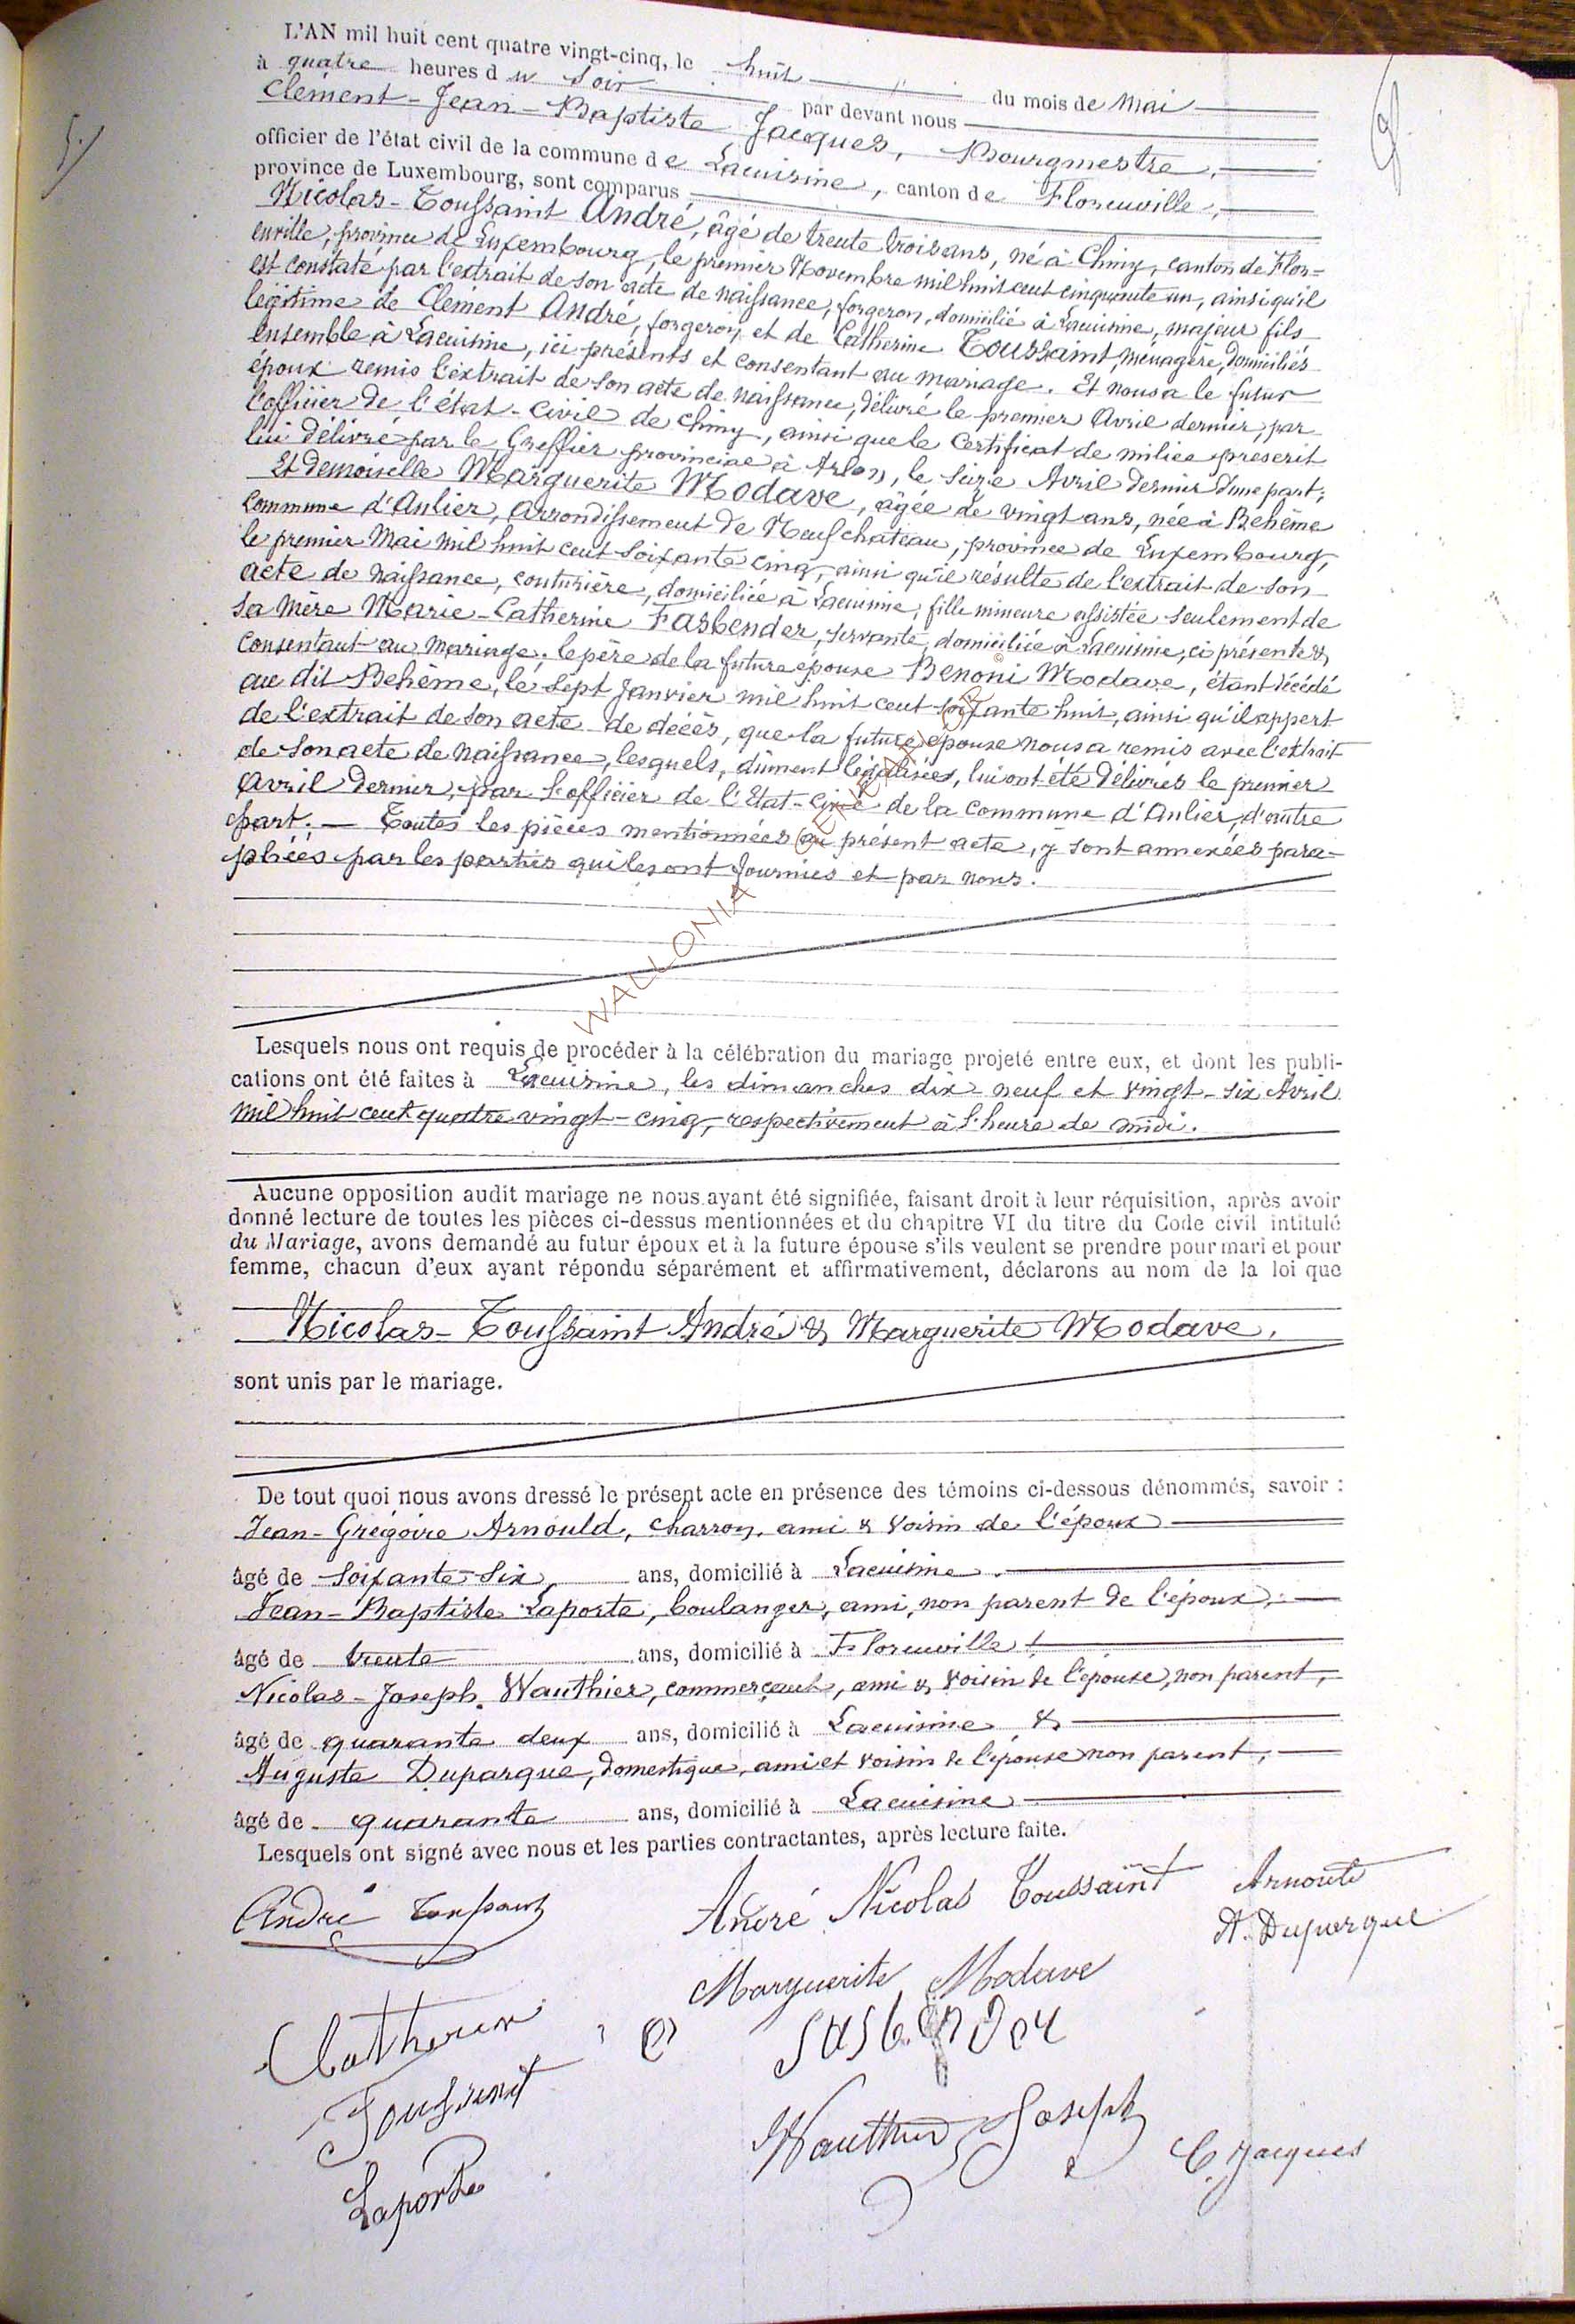 5./
L'AN mil huit cent quatre vingt-cinq, le huit du mois de Mai
à quatre heures du Soir par devant nous
Clément-Jean-Baptiste Jacques, Bourgmestre,
officier de l'état civil de la commune de Lacuisine, canton de Florenville,
province de Luxembourg, sont comparus
Nicolas-Toussaint André, âgé de trente trois ans, né à Chiny, canton de Flor=
enville, province de Luxembourg, le premier Novembre mil huit cent cinquante un, ainsi qu'il
est constaté par l'extrait de son acte de naissance, forgeron, domicilié à Lacuisine, majeur fils
légitime de Clément André, forgeron, et de Catherine Toussaint, ménagère, domiciliés
ensemble à Lacuisine, ici présents et consentant au mariage. Et nous a le futur
époux remis l'extrait de son acte de naissance, délivré le premier Avril dernier, par
l'officier de l'état-civil de Chiny, ainsi que le Certificat de milice prescrit
lui délivré par le Greffier provincial à Arlon, le Seize Avril dernier d'une part;
Et demoiselle Marguerite Modave, âgée de vingt ans, née à Behême
commune d'Anlier, arrondissement de Neufchateau, province de Luxembourg,
le premier Mai mil huit cent soixante cinq, ainsi qu'il résulte de l'extrait de son
acte de naissance, couturière, domiciliée à Lacuisine, fille mineure assistée seulement de
sa mère Marie-Catherine Fasbender, servante, domiciliée à Lacuisine, ci présente &
consentant au mariage, le père de la future epouse Benoni Modave, étant décédé
au dit Behême, le Sept Janvier mil huit cent soixante huit, ainsi qu'il appert
de l'extrait de son acte de décès, que la future epouse nous a remis avec l'extrait
de son acte de naissance, lesquels, dûment légalisés, lui ont été délivrés le premier
Avril dernier, par l'officier de l'Etat-Civil de la commune d'Anlier, d'autre
part. — Toutes les pièces mentionnées au présent acte, y sont annexées para-
phées par les parties qui les ont fournies et par nous.
WALLONIA
Lesquels nous ont requis de procéder à la célébration du mariage projeté entre eux, et dont les publi-
cations ont été faites à Lacuisine, les dimanches dix neuf et vingt-six Avril
mil huit cent quatre vingt-cinq, respectivement à l'heure de midi.
Aucune opposition audit mariage ne nous ayant été signifiée, faisant droit à leur réquisition, après avoir
donné lecture de toutes les pièces ci-dessus mentionnées et du chapitre VI du titre du Code civil intitulé
du Mariage, avons demandé au futur époux et à la future épouse s'ils veulent se prendre pour mari et pour
femme, chacun d'eux ayant répondu séparément et affirmativement, déclarons au nom de la loi que
Nicolas-Toussaint André & Marguerite Modave,
sont unis par le mariage.
De tout quoi nous avons dressé le présent acte en présence des témoins ci-dessous dénommés, savoir :
Jean-Grégoire Arnould, charron, ami & voisin de l'époux
âgé de Soixante-Six ans, domicilié à Lacuisine.
Jean-Baptiste Laporte, boulanger, ami, non parent de l'époux,
âgé de trente ans, domicilié à Florenville,
Nicolas-Joseph Wauthier, commerçant, ami & voisin de l'epouse, non parent,
âgé de quarante deux ans, domicilié à Lacuisine &
Auguste Duparque, domestique, ami et voisin de l'épouse non parent,
âgé de quarante ans, domicilié à Lacuisine
Lesquels ont signé avec nous et les parties contractantes, après lecture faite.
André André Nicolas Toussaint
A. Duparque
Marguerite Modave
Wauthier Joseph
C. Jacques
Laporte